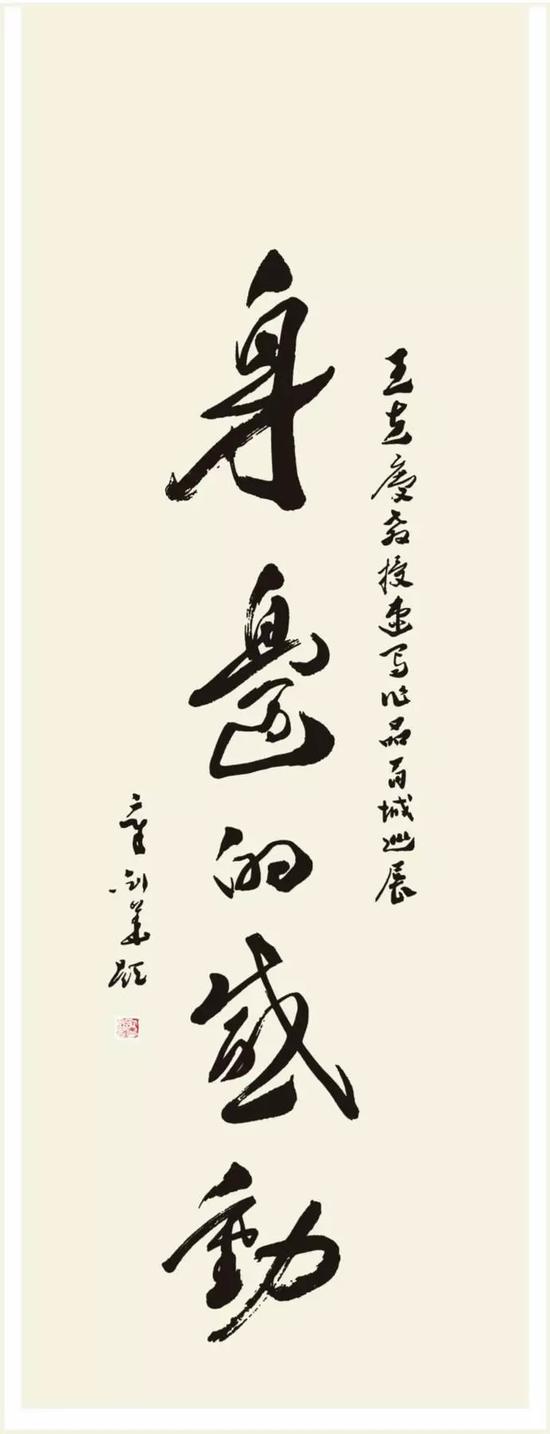 王克慶教授速写作品百城巡展
身邊的感動
章剑華题